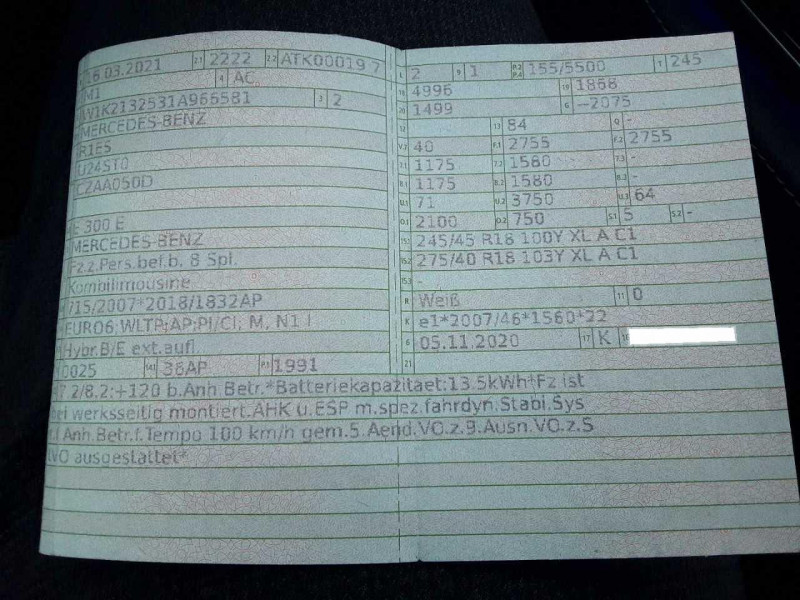 16.03.2021 2.1 2222 2.2 ATK00019 7
M1 4 AC
W1K2132531A965581 3 2
MERCEDES-BENZ
R1ES
U24ST0
CZAA050D
E 300 E
MERCEDES-BENZ
Fz.z.Pers.bef.b. 8 Spl.
Kombilimousine
715/2007*2018/1832AP
EURO6;WLTP;AP;PI/CI; M, N1 I
Hybr.B/E ext.aufl
0025 14.1 36AP P.1 1991
L 2 9 1 P.2 P.4 155/5500 T 245
18 4996 19 1868
20 1499 G --2075
12 - 13 84 Q -
V.7 40 F.1 2755 F.2 2755
7.1 1175 7.2 1580 7.3 -
8.1 1175 8.2 1580 8.3 -
U.1 71 U.2 3750 U.3 64
O.1 2100 O.2 750 S.1 5 S.2 -
15.1 245/45 R18 100Y XL A C1
15.2 275/40 R18 103Y XL A C1
15.3 -
R Weiß 11 0
K e1*2007/46*1560*22
6 05.11.2020 17 K 16
21
7.2/8.2:+120 b.Anh.Betr.*Batteriekapazitaet:13.5kWh*Fz ist
bei werksseitig montiert.AHK u.ESP m.spez.fahrdyn.Stabi.Sys
Anh.Betr.f.Tempo 100 km/h gem.5.Aend.VO.z.9.Ausn.VO.z.S
tVO ausgestattet*